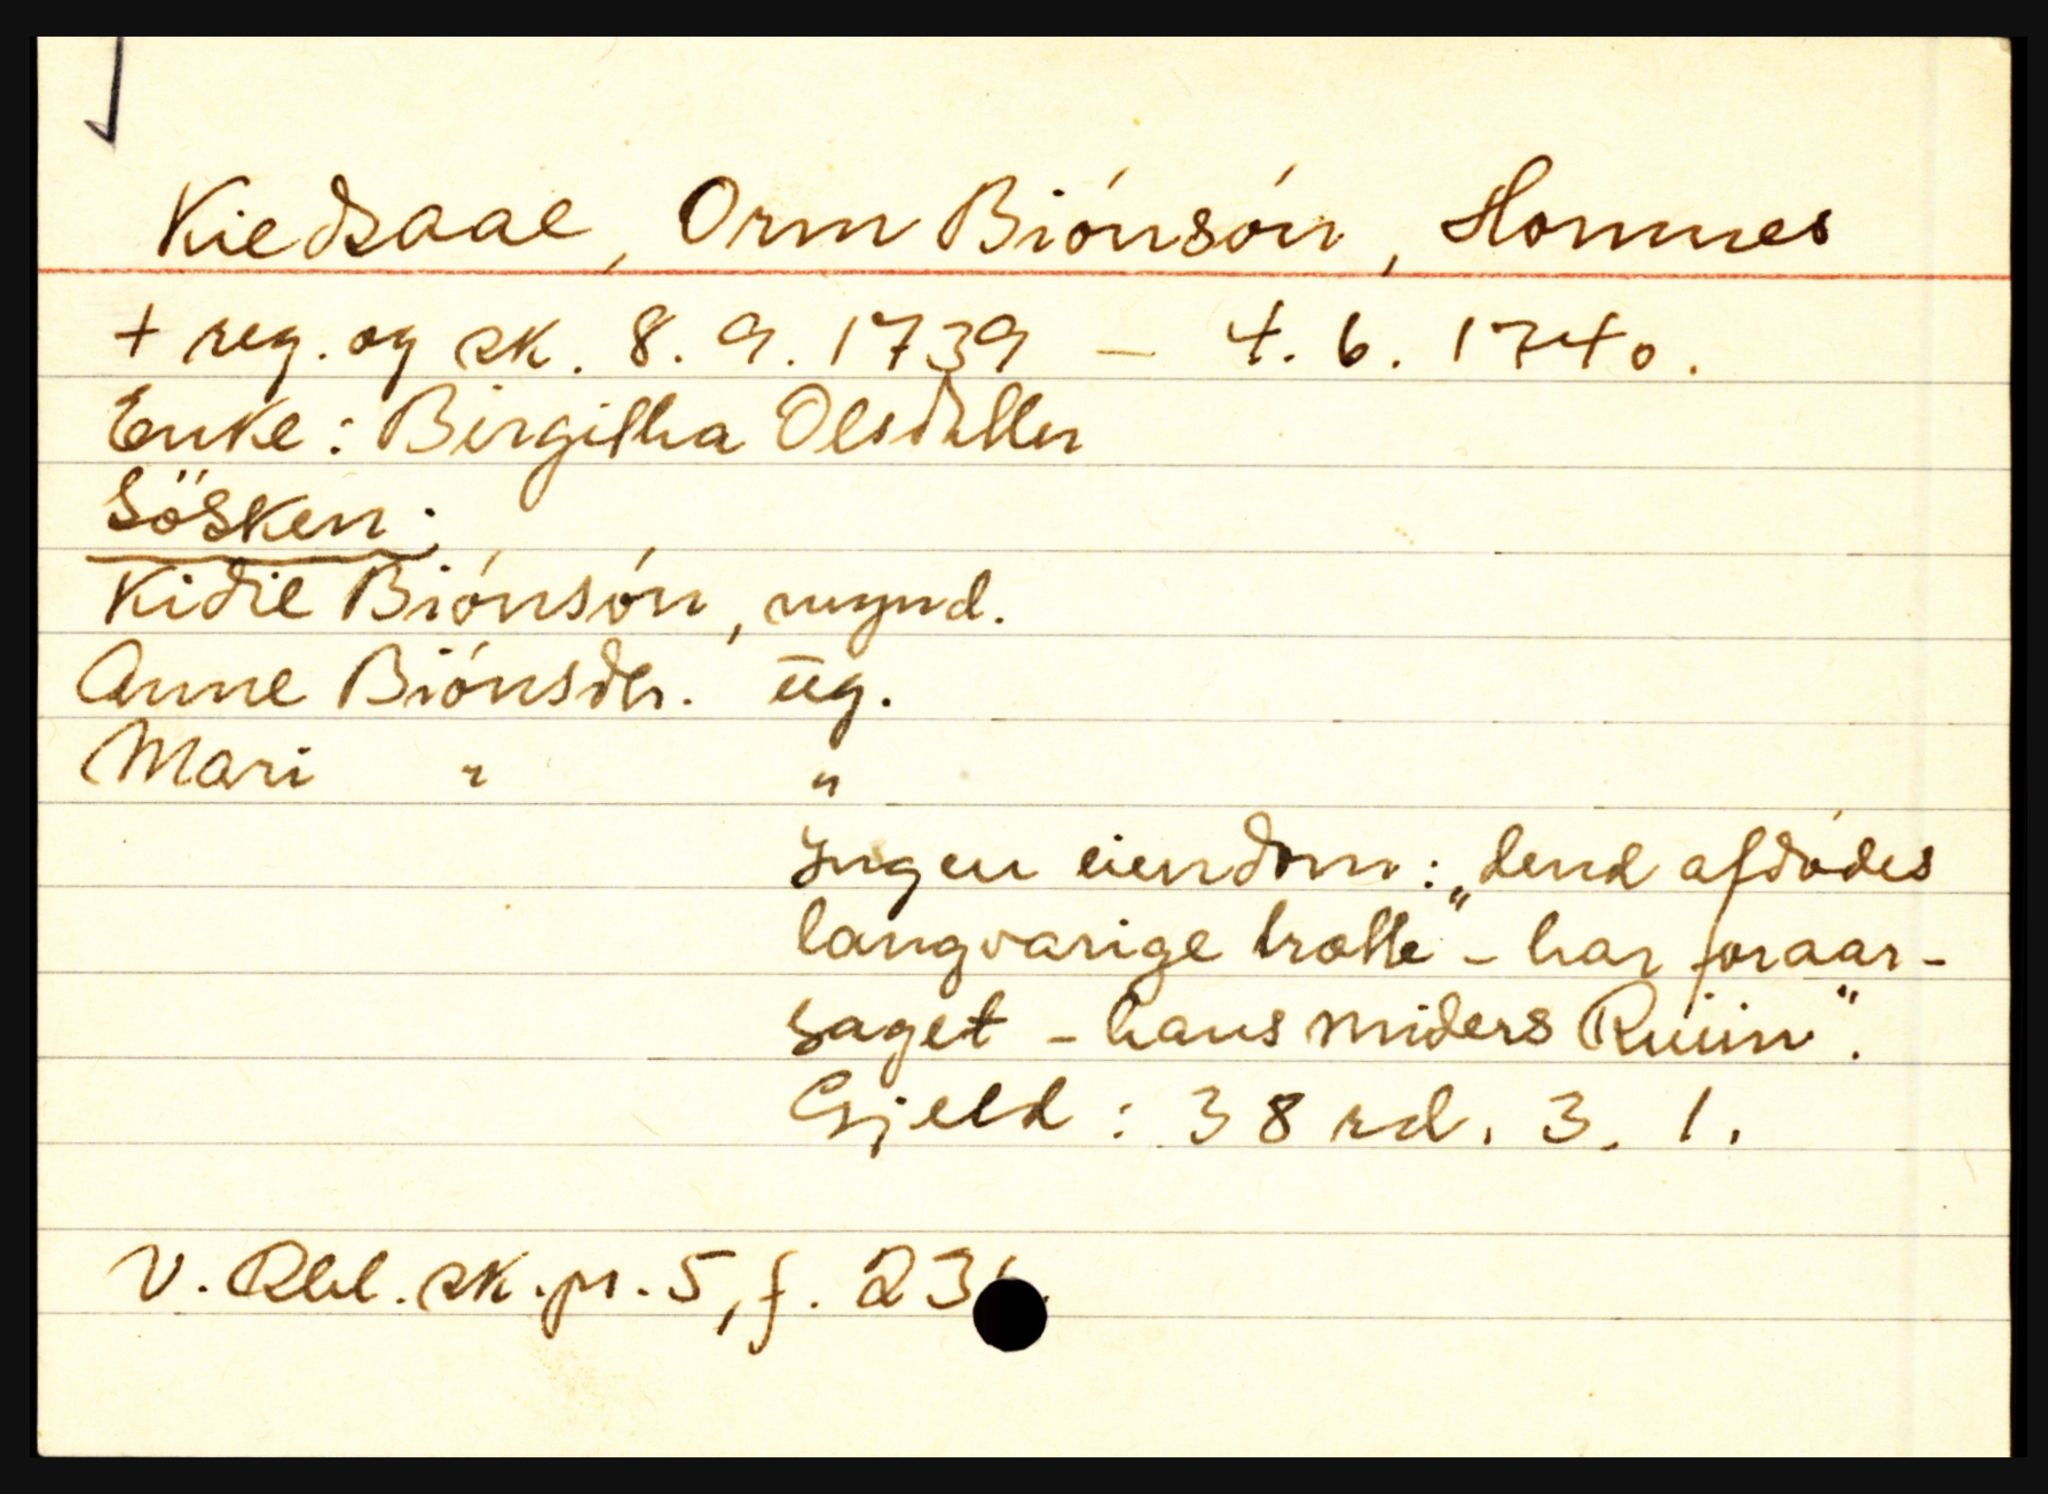 Kiedsaae, Orm Biónsón, Homnes
+ reg. og sk. 8. 9. 1739 — 4. 6. 1740.
Enke: Birgitha Olsdatter
Sösken:
Kidil Biónsón, mynd.
Anne Biónsdtr. ūg.
Mari " "
Ingen eiendom: „dend afdódes
langvarige trætte" - har foraar-
saget - hans miders Ruin".
Gjeld: 38 rd. 3. 1.
V. Rbl. sk. pr. 5, f. 23